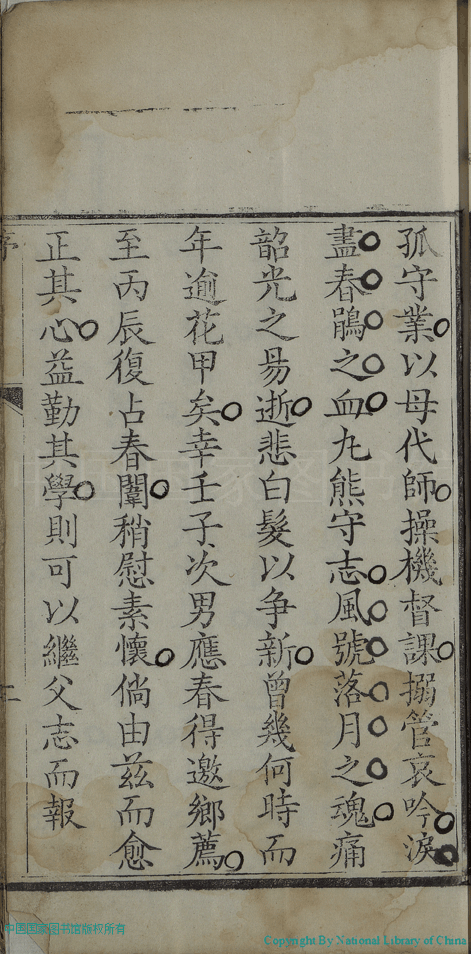 孤守業以母代師操機督課搦管哀吟淚
盡春鵑之血丸熊守志風號落月之魂痛
韶光之易逝悲白髮以争新曾幾何時而
年逾花甲矣幸壬子次男應春得邀鄉薦
至丙辰復占春闈稍慰素懷倘由兹而愈
正其心益勤其學則可以繼父志而報
序
二
中国国家图书馆版权所有
Copyright By National Library of China